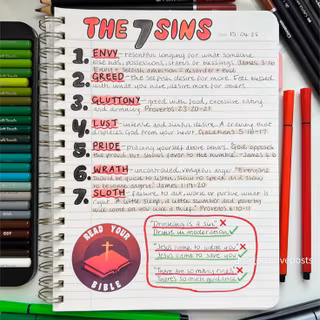 THE 7 SINS
1. ENVY - resentful longing for what someone
else has, possessions, status or blessings. James 3:16
Envy + selfish ambition = disorder + evil
2. GREED - the selfish desire for more. Feel blessed
with what you have, desire more for others.
3. GLUTTONY - greed with food, excessive eating
and drinking. Proverbs 23:20-21
4. LUST - intense and sinful desire. A craving that
displaces God from your heart. Galatians 5:16-17
5. PRIDE - placing yourself above others. "God opposes
the proud but shows favor to the humble" James 4:6
6. WRATH - uncontrolled, vengeful anger. "Everyone
should be quick to listen, slow to speak and slow
to become angry" James 1:19-20
7. SLOTH - failure to act, work or pursue what is
right. A little sleep, a little slumber and poverty
will come on you like a thief." Proverbs 6:10-11
"Drinking is a sin" ✗
Drink in moderation ✓
"Jesus came to judge you" ✗
Jesus came to save you ✓
"There are so many rules" ✗
There's so much guidance ✓
READ YOUR
BIBLE